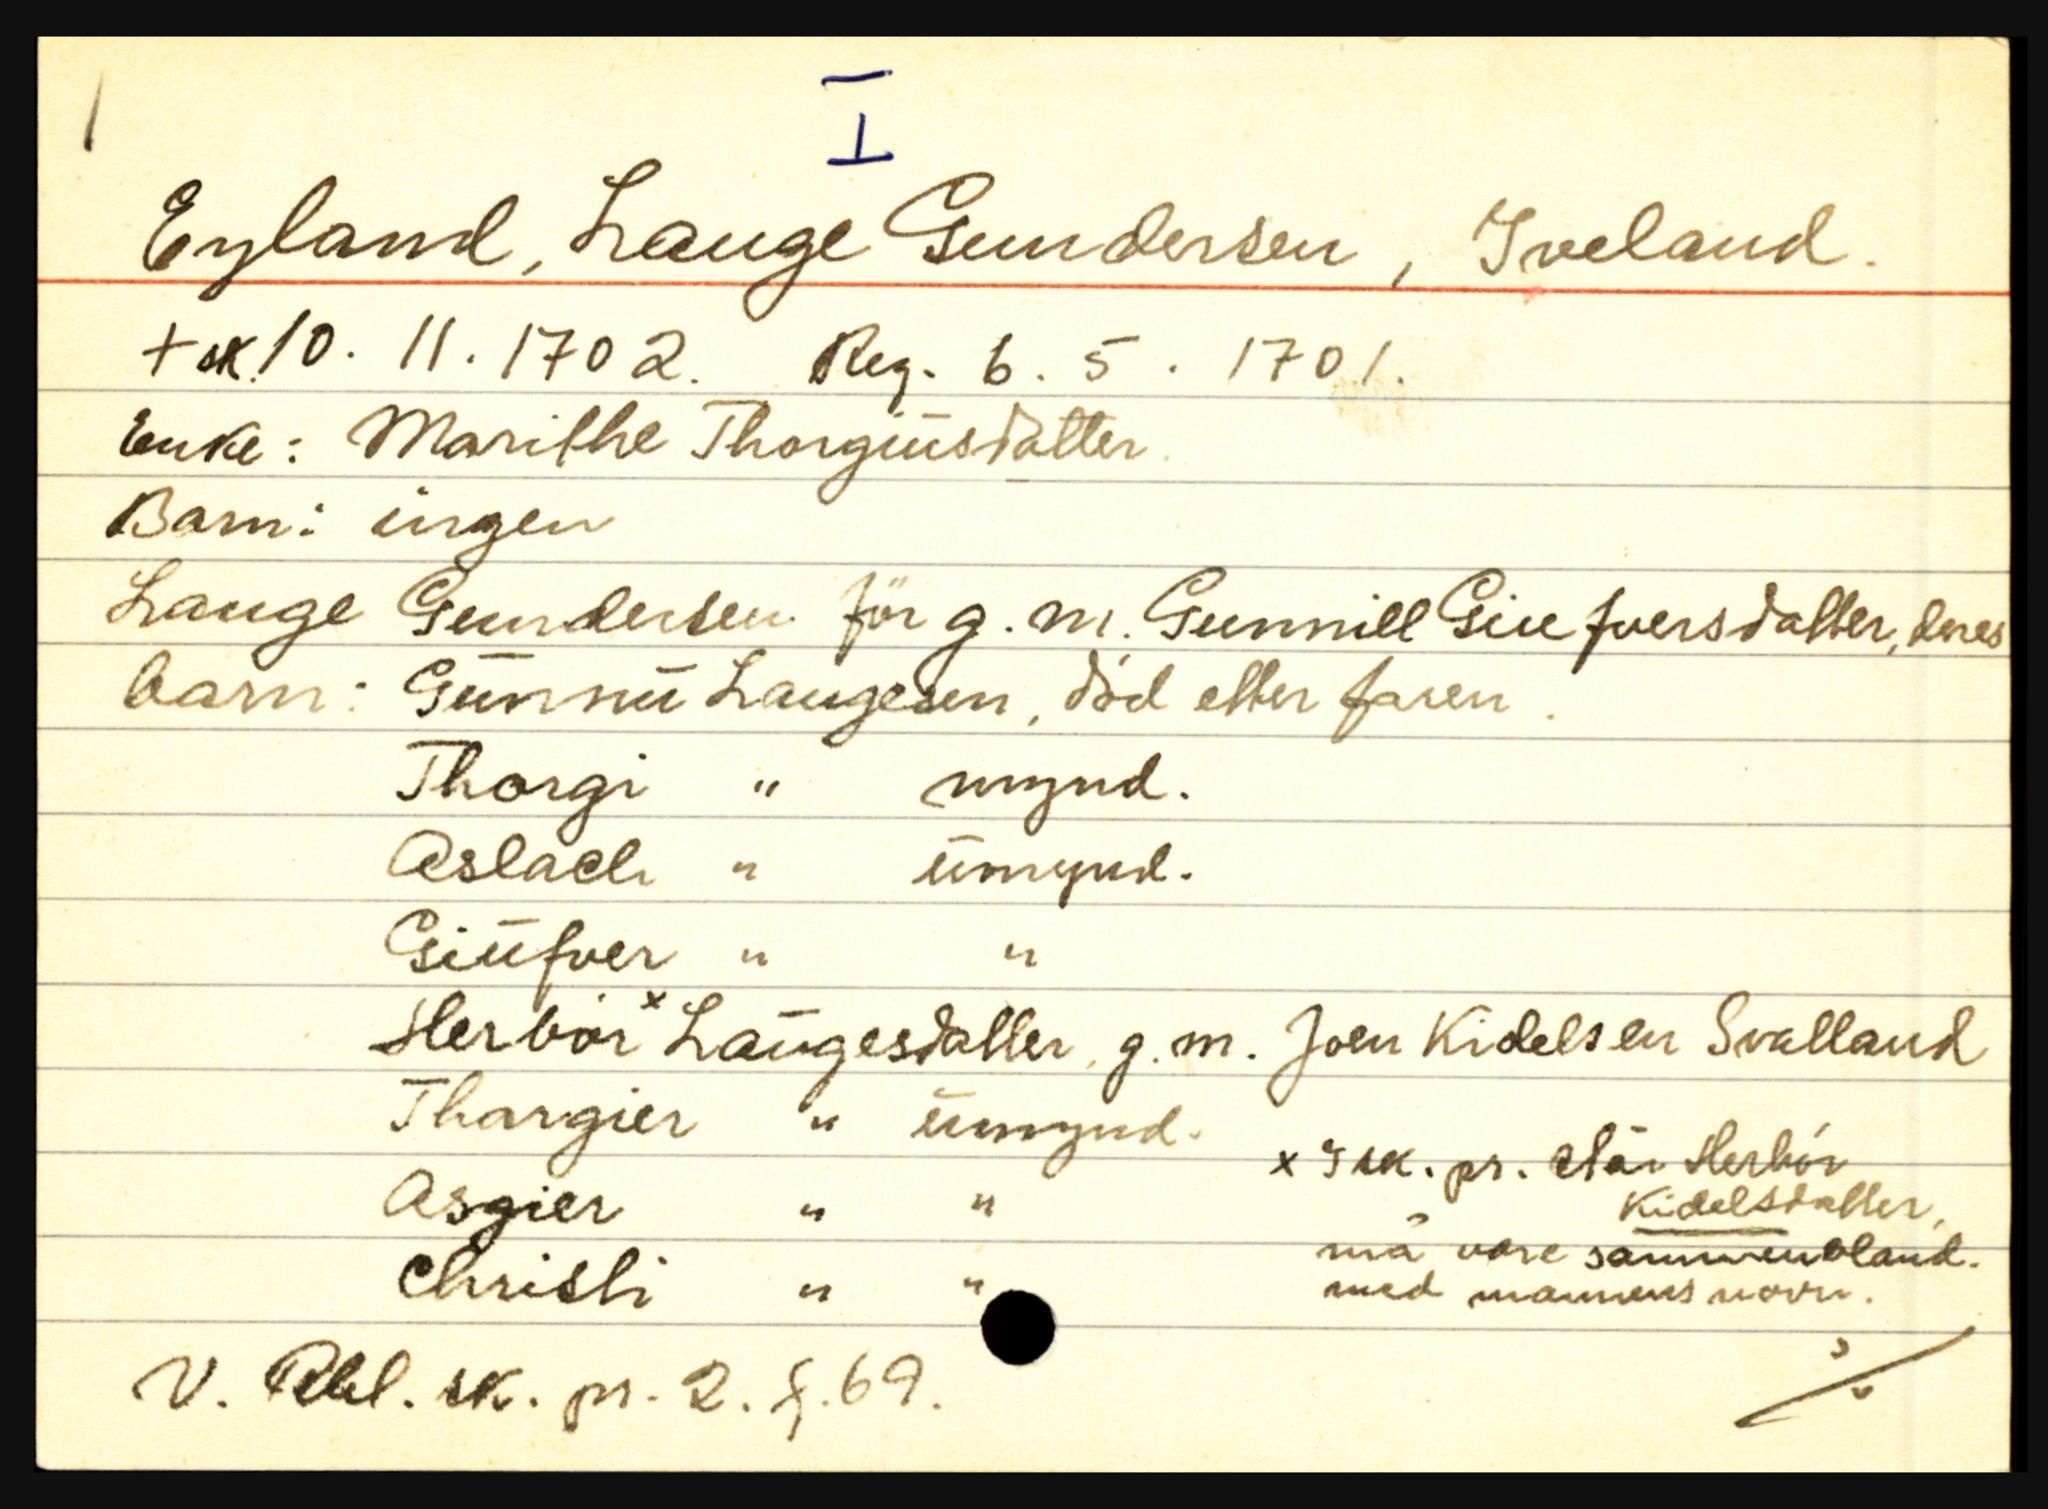 I
Eyland, Lauge Gundersen, Iveland.
+ sk. 10. 11. 1702. Reg. 6. 5. 1701.
Enke: Marithe Thorgiusdatter.
Barn: ingen
Lauge Gundersen før g. m. Gunnill Giufversdatter, deres
barn: Gunnu Laugesen, död etter faren.
Thorgi " mynd.
Aslach " ūmynd.
Giūfver " "
Herbór x Laūgesdatter, g. m. Joen Kidelsen Svalland
Thargier " ūmynd.
x I sk. pr. står Herbór
Asgier " "
Kidelsdatter,
må være sammenbland.
Christi " "
med mannens navn.
V. Rbl. sk. pr. 2. f. 69.